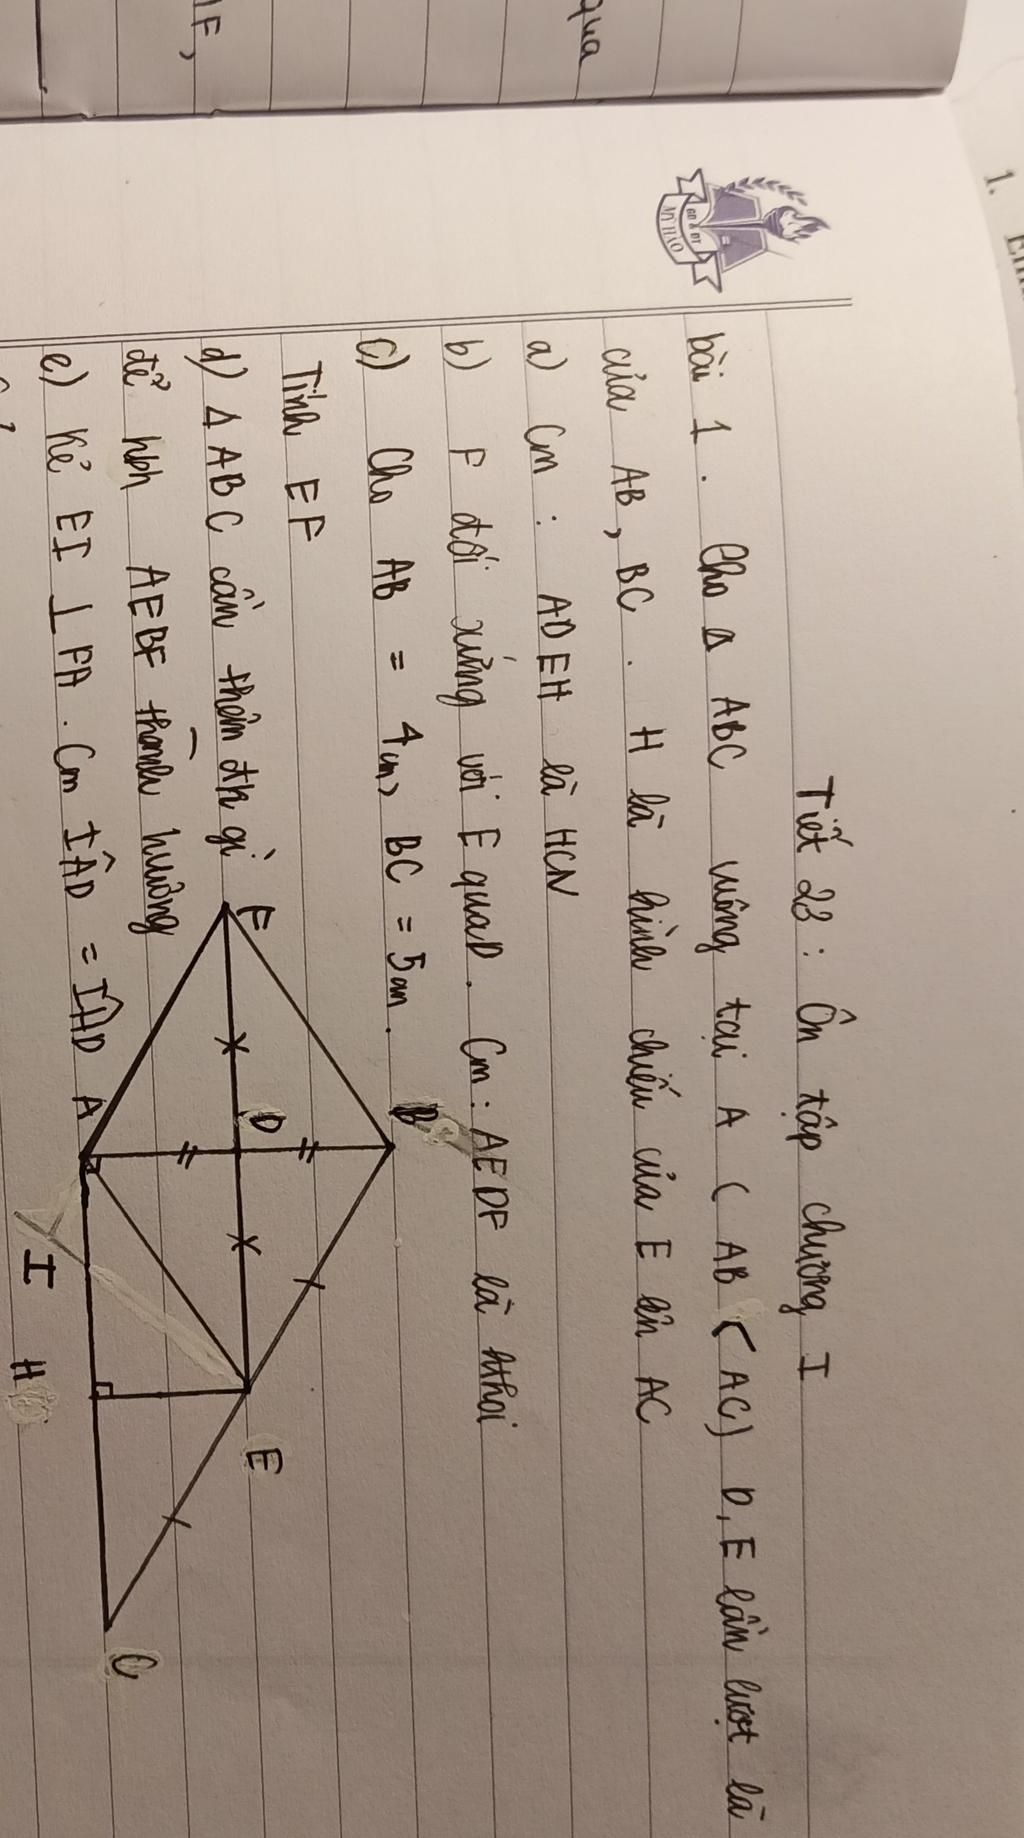 qua
IF,
1.
GD & ĐT
MỸ HÀO
Tiết 23 : Ôn tập chương I
bài 1 . Cho Δ ABC vuông tại A ( AB < AC) D, E lần lượt là
của AB, BC . H là hình chiếu của E lên AC
a) Cm : ADEH là HCN
b) F đối xứng với E qua D. Cm : AEDF là hthoi
c) Cho AB = 4cm, BC = 5cm.
Tính EF
d) Δ ABC cần thêm đk gì
để hbh AEBF thành hvuông
e) Kẻ EI ⊥ FA . Cm IÂD = IĤD
F
B
D
A
E
I
H
C